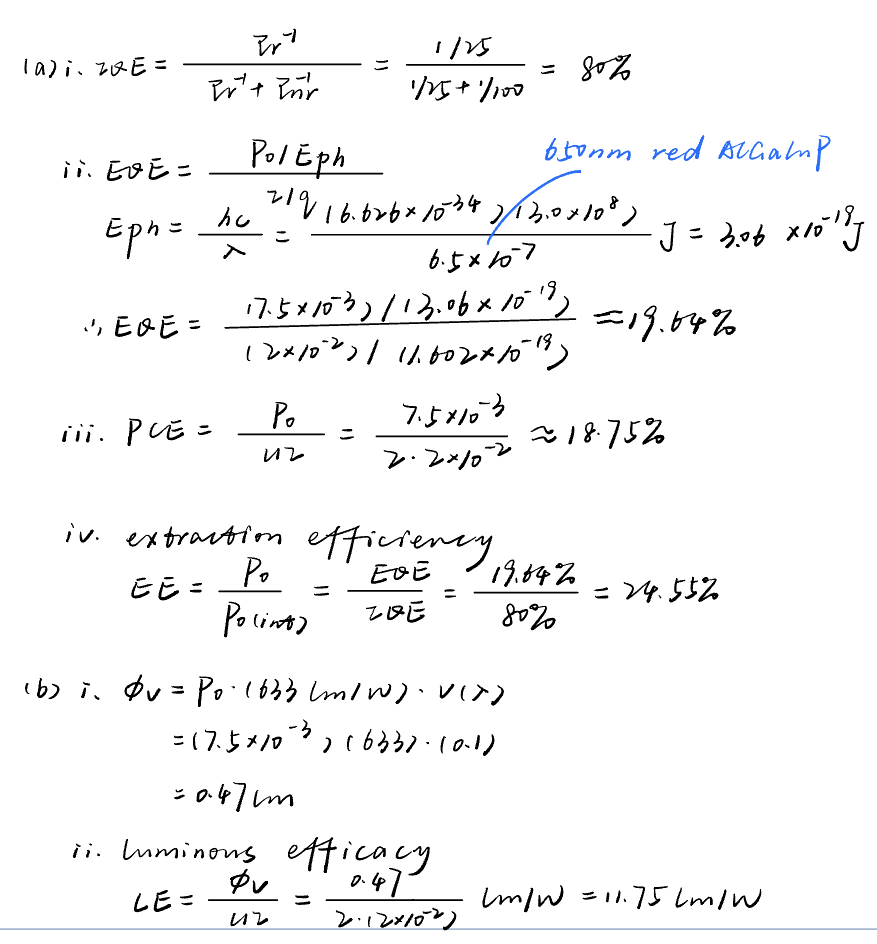 (a) i. IQE = τr⁻¹ / (τr⁻¹ + τnr⁻¹) = (1/25) / (1/25 + 1/100) = 80%
650nm red AlGaInP
ii. EQE = (Po/Eph) / (I/q)
Eph = hc/λ = (6.626×10⁻³⁴)(3.0×10⁸) / 6.5×10⁻⁷ J = 3.06 ×10⁻¹⁹J
∴ EQE = (7.5×10⁻³)/(3.06×10⁻¹⁹) / (2×10⁻²)/(1.602×10⁻¹⁹) ≈ 19.64%
iii. PCE = Po / UI = 7.5×10⁻³ / 2·2×10⁻² ≈ 18.75%
iv. extraction efficiency
EE = Po / Po(int) = EQE / IQE = 19.64% / 80% = 24.55%
(b) i. Φv = Po·(633 lm/W)·V(λ)
= (7.5×10⁻³)(633)·(0.1)
= 0.47 lm
ii. luminous efficacy
LE = Φv / UI = 0.47 / 2·(2×10⁻²) lm/W = 11.75 lm/W